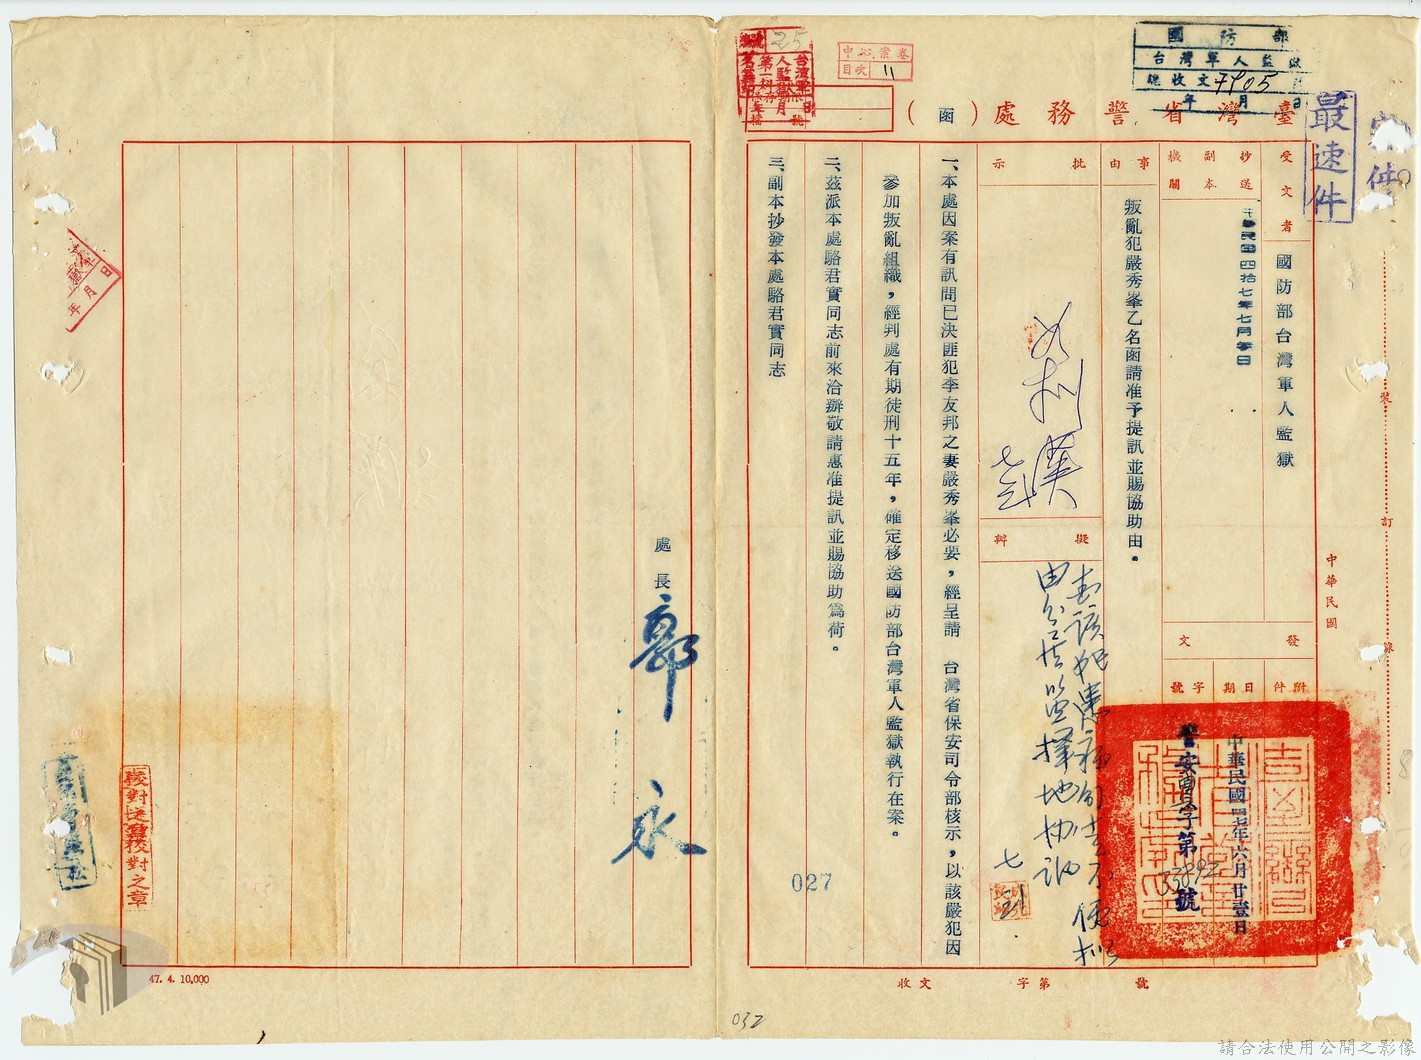 臺灣省警務處（函）
國防部
台灣軍人監獄
總收文7905
年 月 日
最速件
中心案卷
目次 11
25
受文者
國防部台灣軍人監獄
抄送副本機關
中華民國四拾七年七月
事由
叛亂犯嚴秀峯乙名函請准予提訊並賜協助由。
批示
擬辦
一、本處因案有訊問已決匪犯李友邦之妻嚴秀峯必要，經呈請 台灣省保安司令部核示，以該嚴犯因
參加叛亂組織，經判處有期徒刑十五年，確定移送國防部台灣軍人監獄執行在案。
二、茲派本處駱君實同志前來洽辦敬請惠准提訊並賜協助爲荷。
三、副本抄發本處駱君實同志
處長
郭永
發文
附件
日期
字號
中華民國四七年六月廿壹日
警安字第33892號
中華民國
裝
訂
線
校對
校對之章
027
收文 字第 號
47. 4. 10,000
032
請合法使用公開之影像